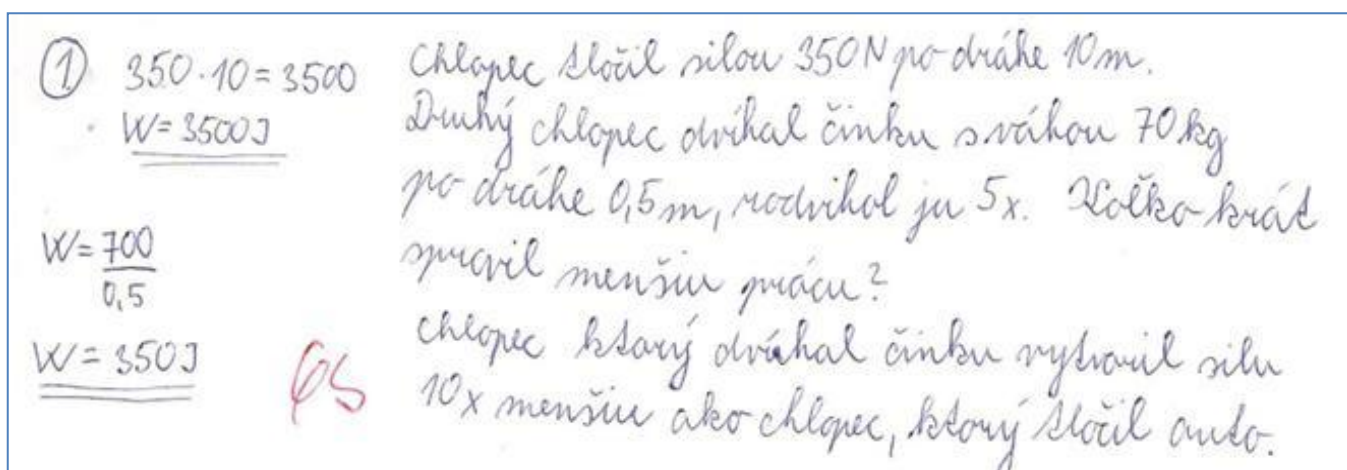 ① 350 · 10 = 3500
W = 3500J
W = 700
0,5
W = 350J
Chlapec tločil silou 350N po dráhe 10m.
Druhý chlapec dvíhal činku s váhou 70kg
po dráhe 0,5m, nadvihol ju 5x. Koľko krát
spravil menšiu prácu?
chlapec ktorý dvíhal činku vytvoril silu
10x menšiu ako chlapec, ktorý tločil auto.